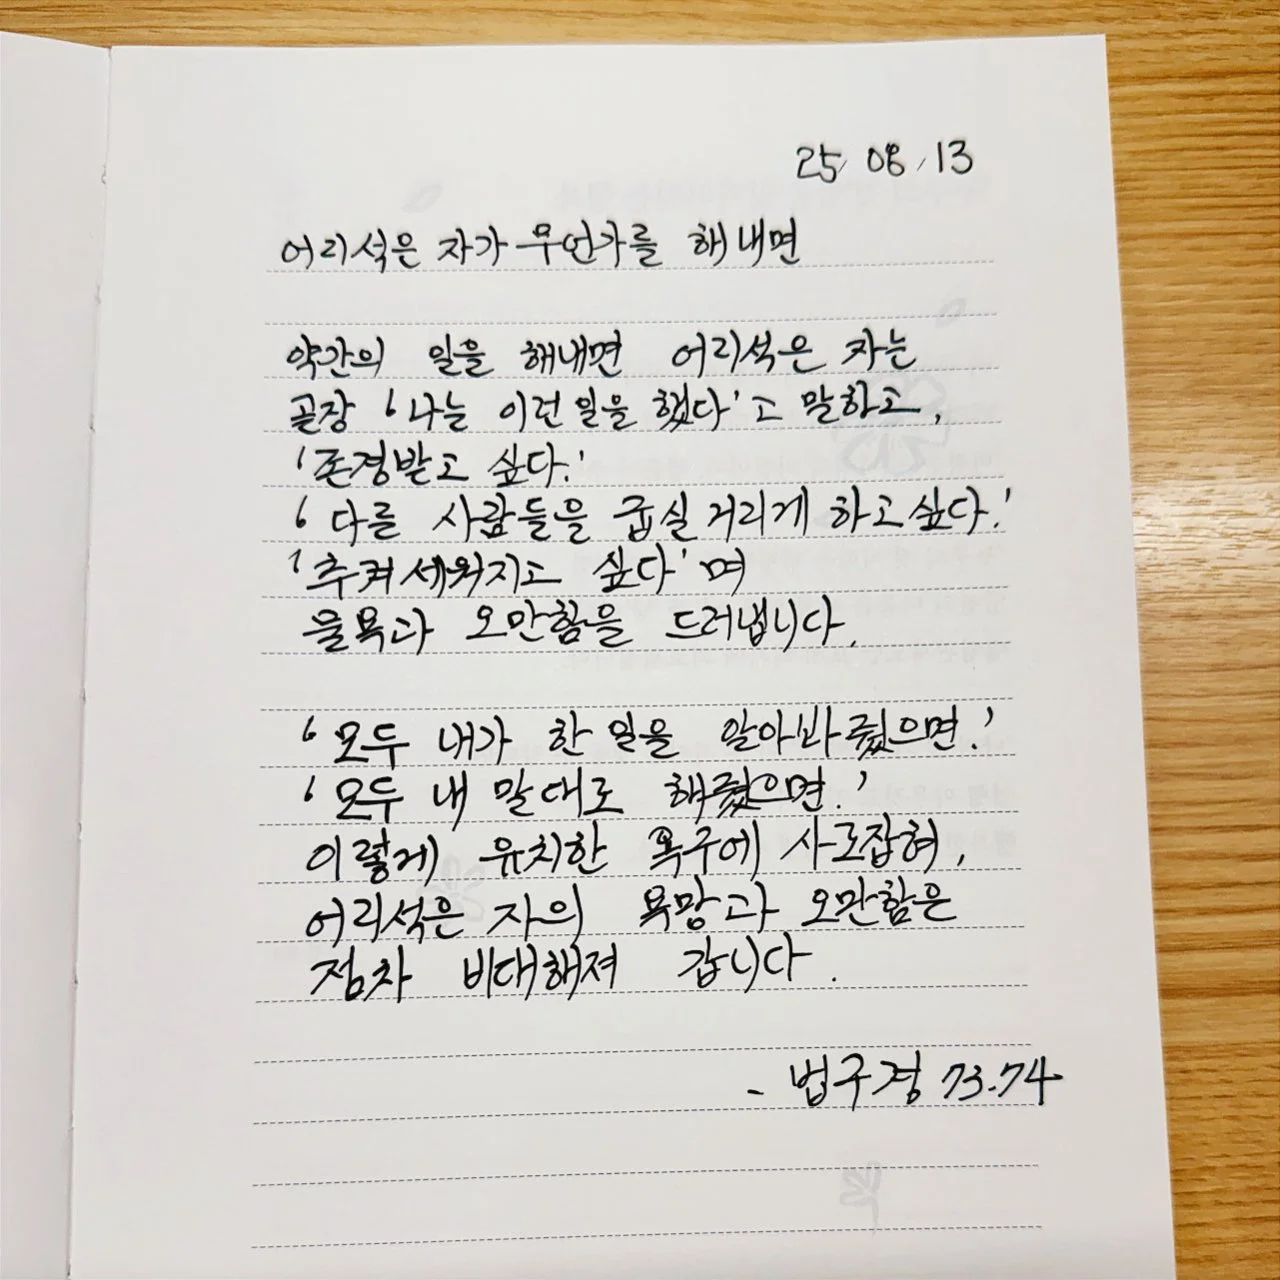 25. 08. 13
어리석은 자가 무언가를 해내면
약간의 일을 해내면 어리석은 자는
곧장 '나는 이런 일을 했다'고 말하고,
'존경받고 싶다.'
'다른 사람들을 굽실거리게 하고 싶다.'
'추켜세워지고 싶다'며
물욕과 오만함을 드러냅니다.
'모두 내가 한 일을 알아봐 줬으면.'
'모두 내 말대로 해줬으면.'
이렇게 유치한 욕구에 사로잡혀,
어리석은 자의 욕망과 오만함은
점차 비대해져 갑니다.
- 법구경 73.74